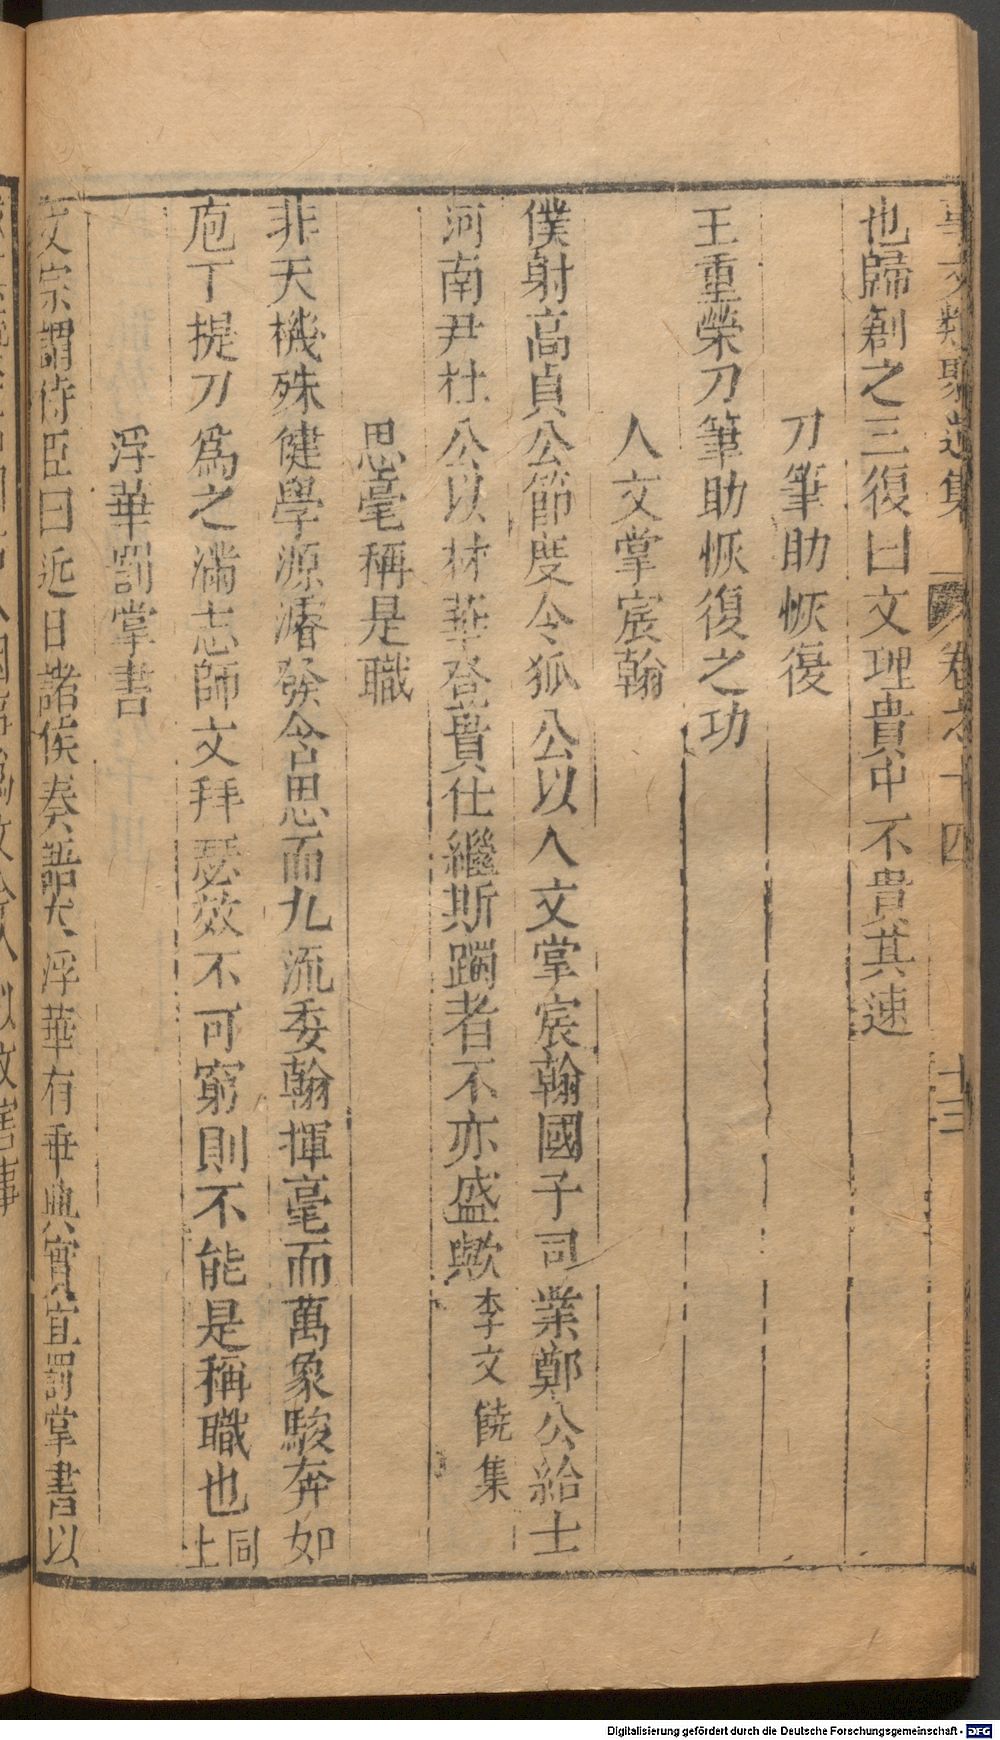 事文類聚遺集 卷之十四 十三
也歸創之三復曰文理貴中不貴其速
刀筆助恢復
王重榮刀筆助恢復之功
人文掌宸翰
僕射高貞公節度令狐公以人文掌宸翰國子司業鄭公給士
河南尹杜公以材華登貴仕繼斯躅者不亦盛歟李文饒集
思毫稱是職
非天機殊健學源濬發含思而九流委翰揮毫而萬象駿奔如
庖丁提刀爲之滿志師文拜瑟效不可窮則不能是稱職也同上
浮華罰掌書
文宗謂侍臣曰近日諸侯奏語太浮華有乖典實宜罰掌書以
Digitalisierung gefördert durch die Deutsche Forschungsgemeinschaft - DFG